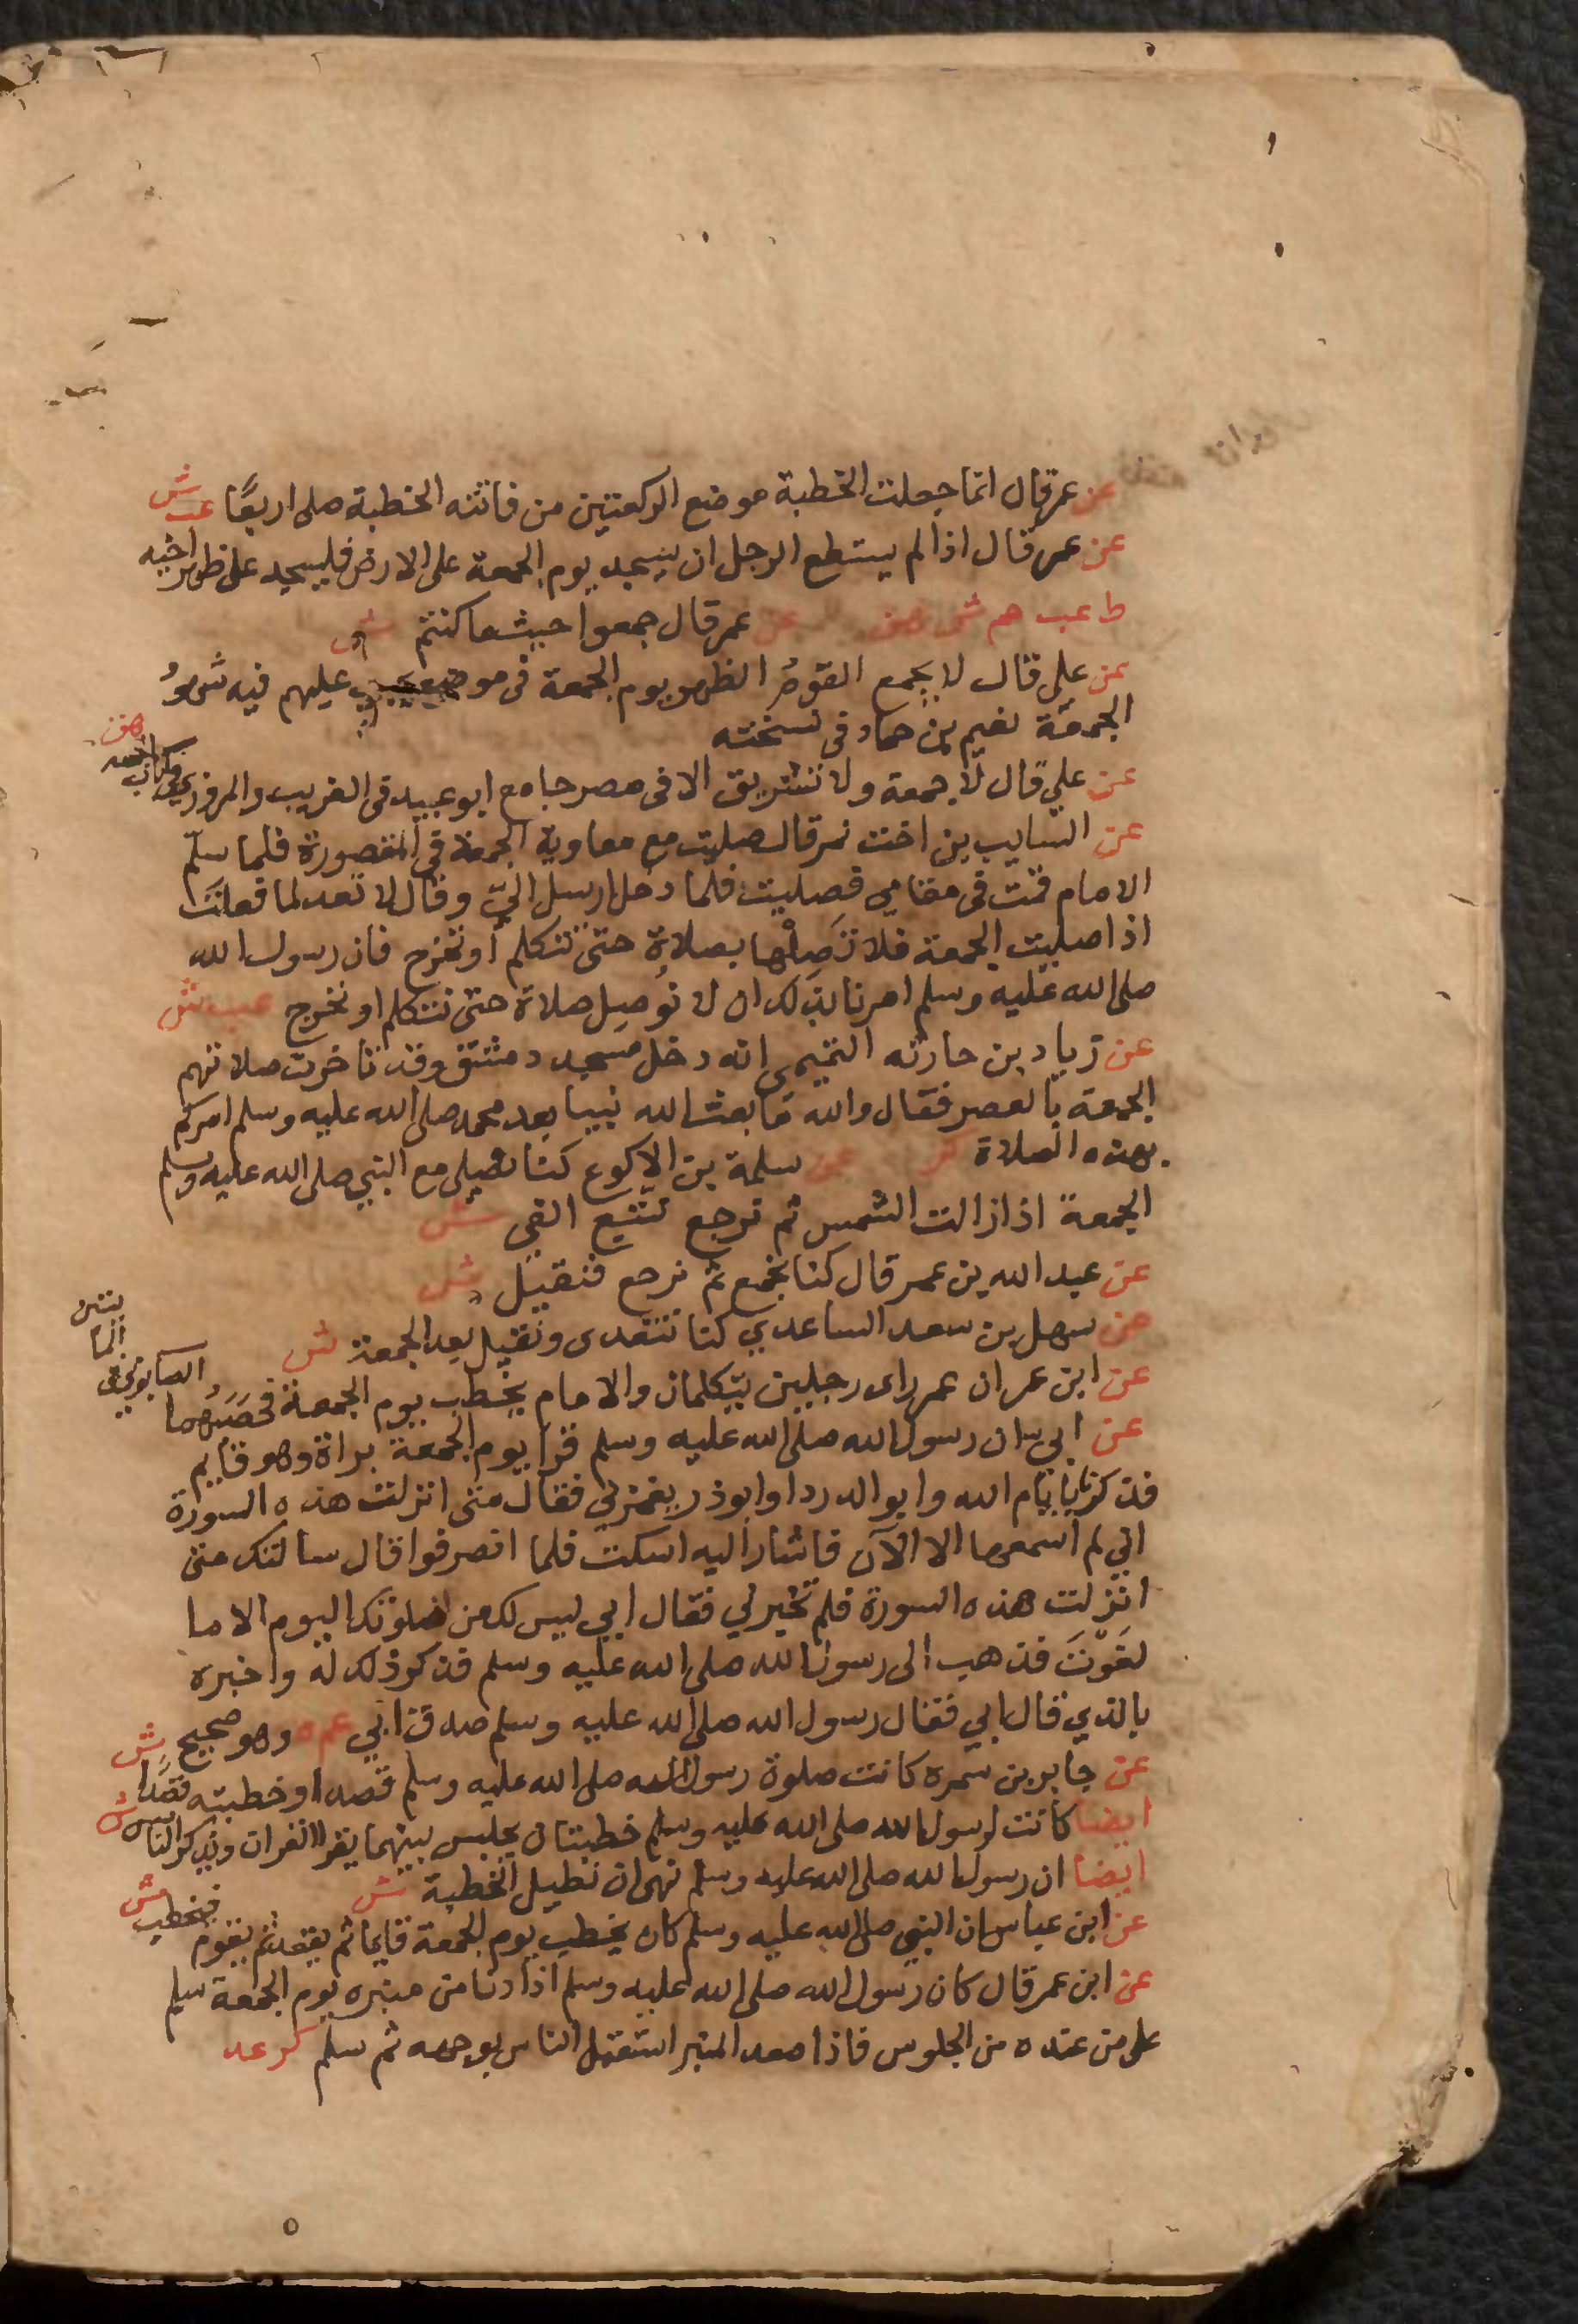 عن عمر قال انما جعلت الخطبة موضع الركعتين من فاتته الخطبة صلى اربعًا عب ش
عن عمر قال اذا لم يستطع الرجل ان يسجد يوم الجمعة على الارض فليسجد على ظهر اخيه
ط عب حم ش هق عن عمر قال جمعوا حيث ما كنتم ش
عن علي قال لا يجمع القومُ الظهر يوم الجمعة في موضع يجب عليهم فيه شهودُ
الجمعة نعيم بن حماد في نسخته
عن علي قال لا جمعة ولا تشريق الا في مصر جامع ابو عبيد في الغريب والمروزي في كتاب الجمعة هق
عن السايب بن اخت نمر قال صليت مع معاوية الجمعة في المقصورة فلما سلم
الامام قمت في مقامي فصليت فلما دخل ارسل اليّ وقال لا تعد لما فعلتَ
اذا صليت الجمعة فلا تَصِلْها بصلاة حتى تتكلم او تخرج فان رسول الله
صلى الله عليه وسلم امرنا بذلك ان لا نُوصِل صلاة حتى نتكلم او نخرج عب ش
عن زياد بن حارثه التميمى انه دخل مسجد دمشق وقد تاخرت صلاتهم
الجمعة بالعصر فقال والله ما بعث الله نبيبا بعد محمد صلى الله عليه وسلم امركم
بهذه الصلاة كر عن سلمة بن الاكوع كنا نصلي مع النبي صلى الله عليه وسلم
الجمعة اذا زالت الشمس ثم نرجع نتتبع الفي ش
عن عبد الله بن عمر قال كنا نجمع ثم نرجع فنقيل ش
عن سهل بن سعد الساعدي كنا نتغدى ونقيل بعد الجمعة ش
عن ابن عمر ان عمر راى رجلين يتكلمان والامام يخطب يوم الجمعة فحصَبَهما الصابوني في المائتين
عن ابي ان رسول الله صلى الله عليه وسلم قرا يوم الجمعة براة وهو قايم
فذكرنا بايام الله وابو الدردا وابوذر يغمزني فقال متى انزلت هذه السورة
اني لم اسمعها الا الآن فاشار اليه اسكت فلما انصرفوا قال سالتك متى
انزلت هذه السورة فلم تخبرني فقال ابي ليس لك من صلوتك اليوم الا ما
لغَوتَ فذهب الى رسول الله صلى الله عليه وسلم فذكر ذلك له واخبره
بالذي قال ابي فقال رسول الله صلى الله عليه وسلم صدق ابي عم ه وهو صحيح
عن جابر بن سمره كانت صلوة رسول الله صلى الله عليه وسلم قصدا وخطبته قصدًا ش
ايضا كانت لرسول الله صلى الله عليه وسلم خطبتان يجلس بينهما يقرا القران ويذكر الناس ش
ايضا ان رسول الله صلى الله عليه وسلم نهى ان نطيل الخطبة ش
عن ابن عباس ان النبي صلى الله عليه وسلم كان يخطب يوم الجمعة قايما ثم يقعد ثم يقوم فيخطب ش
عن ابن عمر قال كان رسول الله صلى الله عليه وسلم اذا دنا من منبره يوم الجمعة سلم
على من عنده من الجلوس فاذا صعد المنبر استقبل الناس بوجهه ثم سلم كر عد